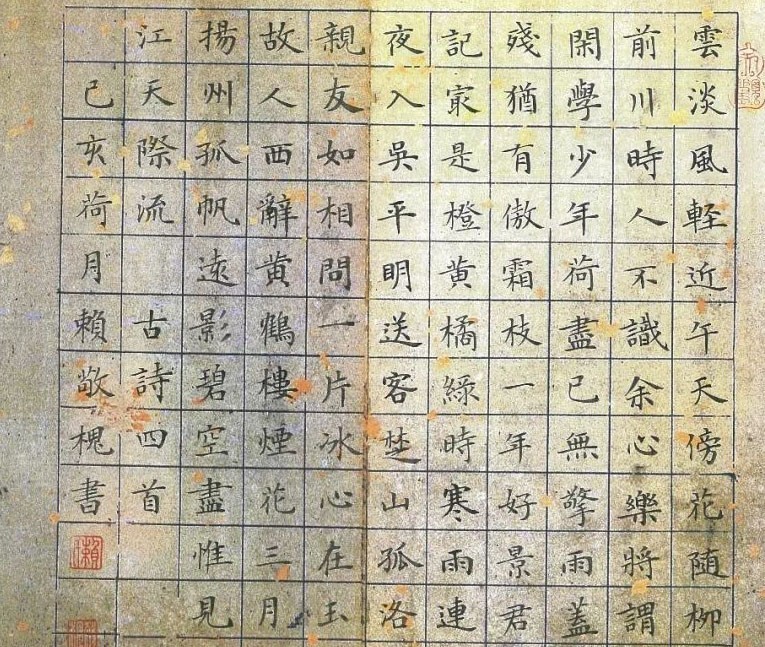 雲淡風輕近午天傍花隨柳
前川時人不識余心樂將謂
閑學少年荷盡已無擎雨蓋
殘猶有傲霜枝一年好景君
記㝡是橙黃橘綠時寒雨連
夜入吳平明送客楚山孤洛
親友如相問一片冰心在玉
故人西辭黃鶴樓煙花三月
揚州孤帆遠影碧空盡惟見
江天際流 古詩四首
己亥荷月賴敬槐書